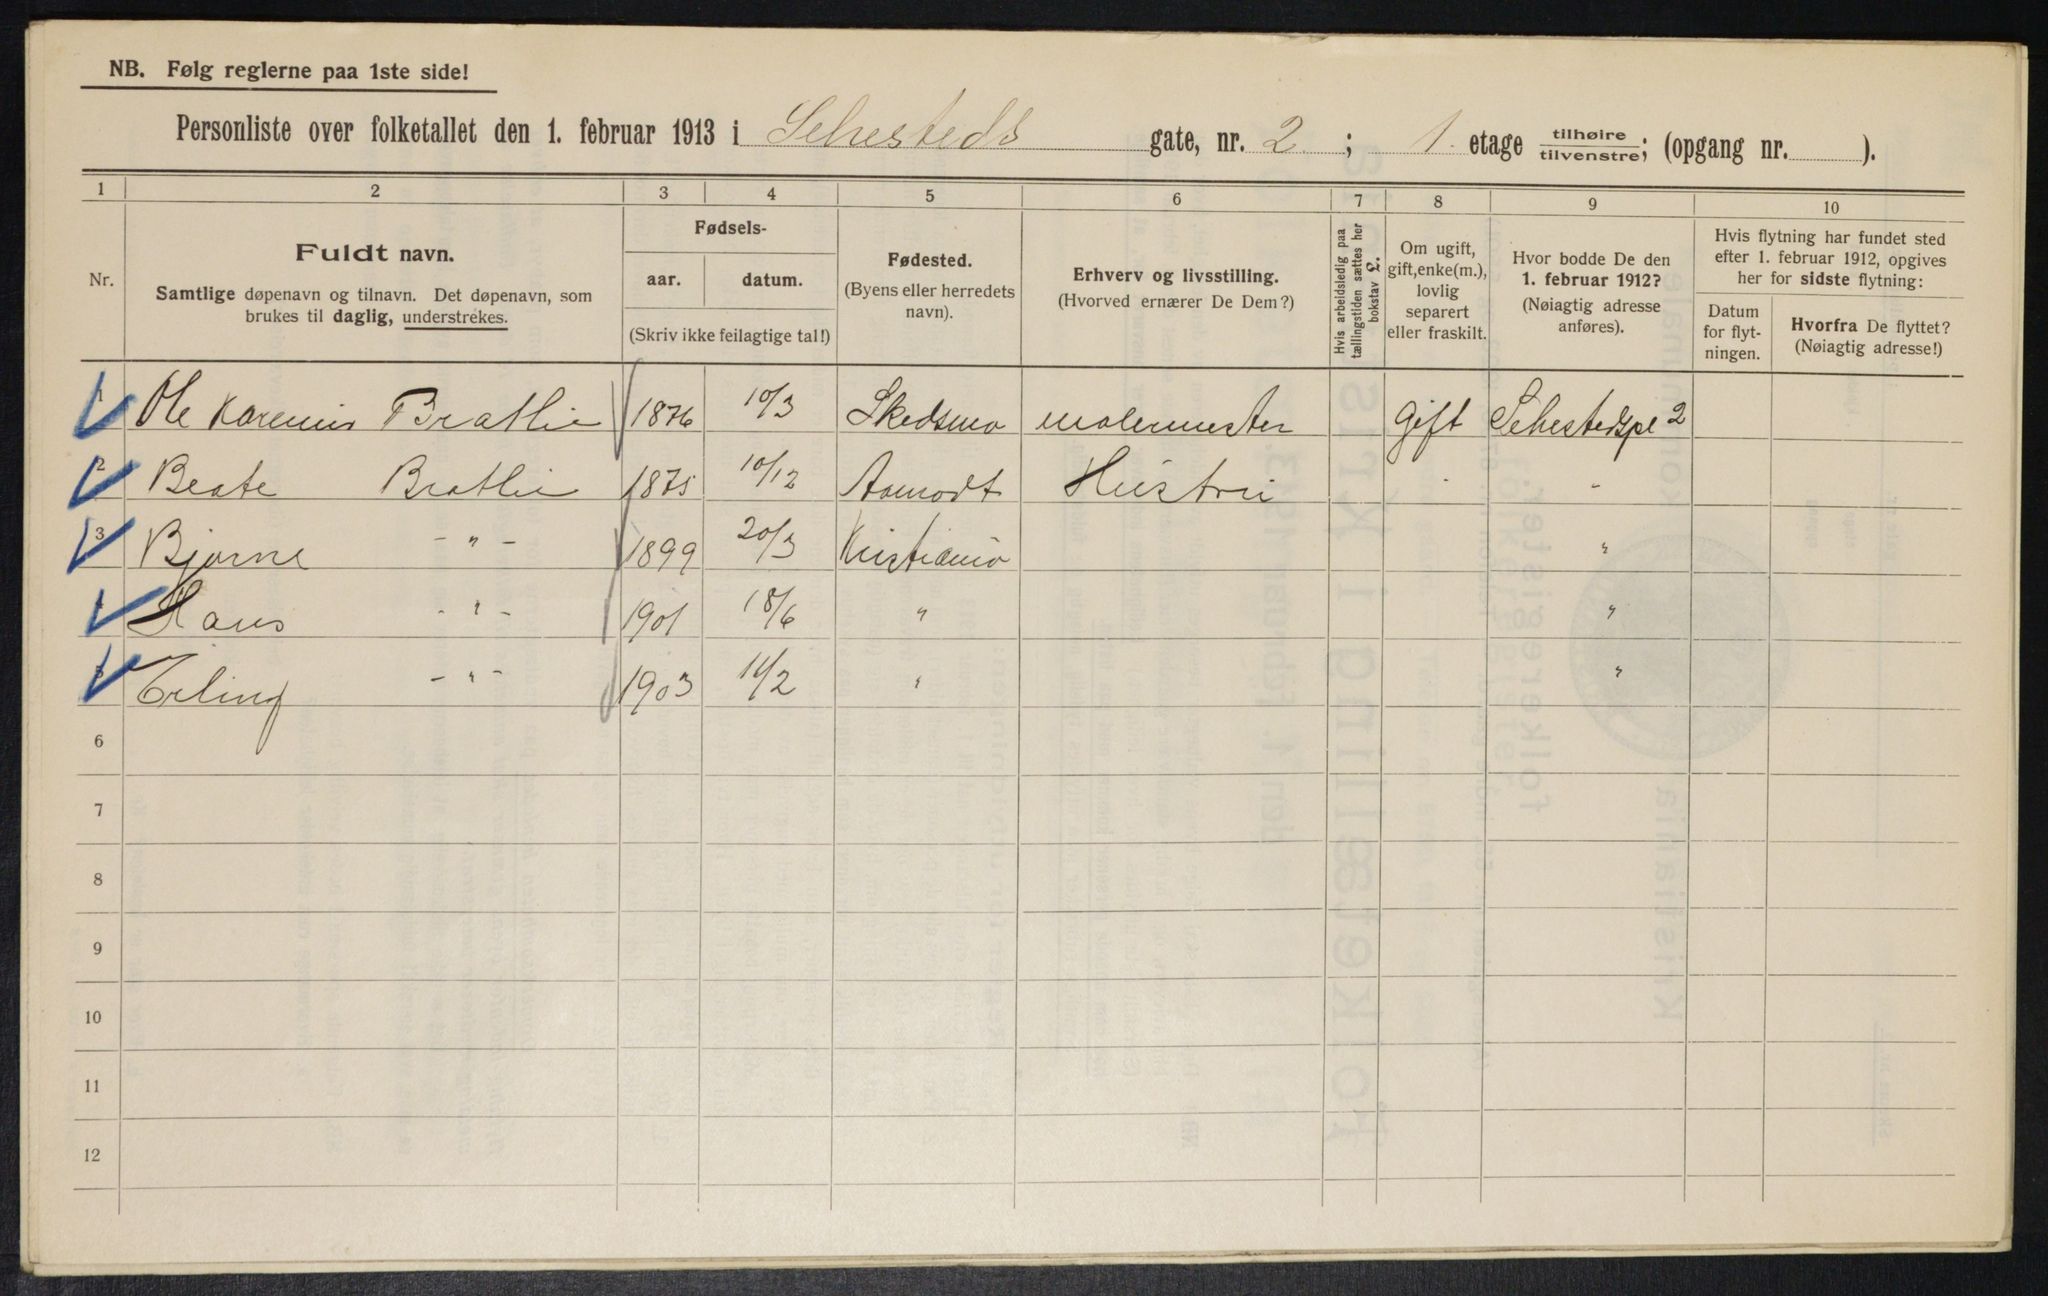 NB. Følg reglerne paa 1ste side!
Personliste over folketallet den 1. februar 1913 i Sehesteds gate, nr. 2 ; 1. etage tilhøire/tilvenstre; (opgang nr. ).
1 2 3 4 5 6 7 8 9 10
Nr.
Fuldt navn.
Samtlige døpenavn og tilnavn. Det døpenavn, som
brukes til daglig, understrekes.
Fødsels-
aar. datum.
(Skriv ikke feilagtige tal!)
Fødested.
(Byens eller herredets
navn).
Erhverv og livsstilling.
(Hvorved ernærer De Dem?)
Hvis arbeidsledig paa
tællingstiden sættes her
bokstav L.
Om ugift,
gift, enke(m.),
lovlig
separert
eller fraskilt.
Hvor bodde De den
1. februar 1912?
(Nøiagtig adresse
anføres).
Hvis flytning har fundet sted
efter 1. februar 1912, opgives
her for sidste flytning:
Datum
for flyt-
ningen.
Hvorfra De flyttet?
(Nøiagtig adresse!)
1 Ole Karenius Brathie 1876 10/3 Skedsmo malermester Gift Sehestedspl 2
2 Beate Brathie 1875 10/12 Aamodt Hustru " "
3 Bjarne - " - 1899 20/3 Kristiania "
4 Hans - " - 1901 18/6 " "
5 Erling - " - 1903 14/2 " "
6
7
8
9
10
11
12